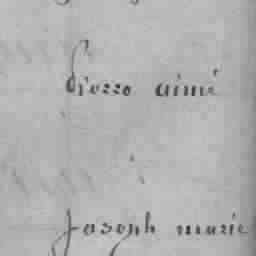 Piozzo aimé
Joseph marie